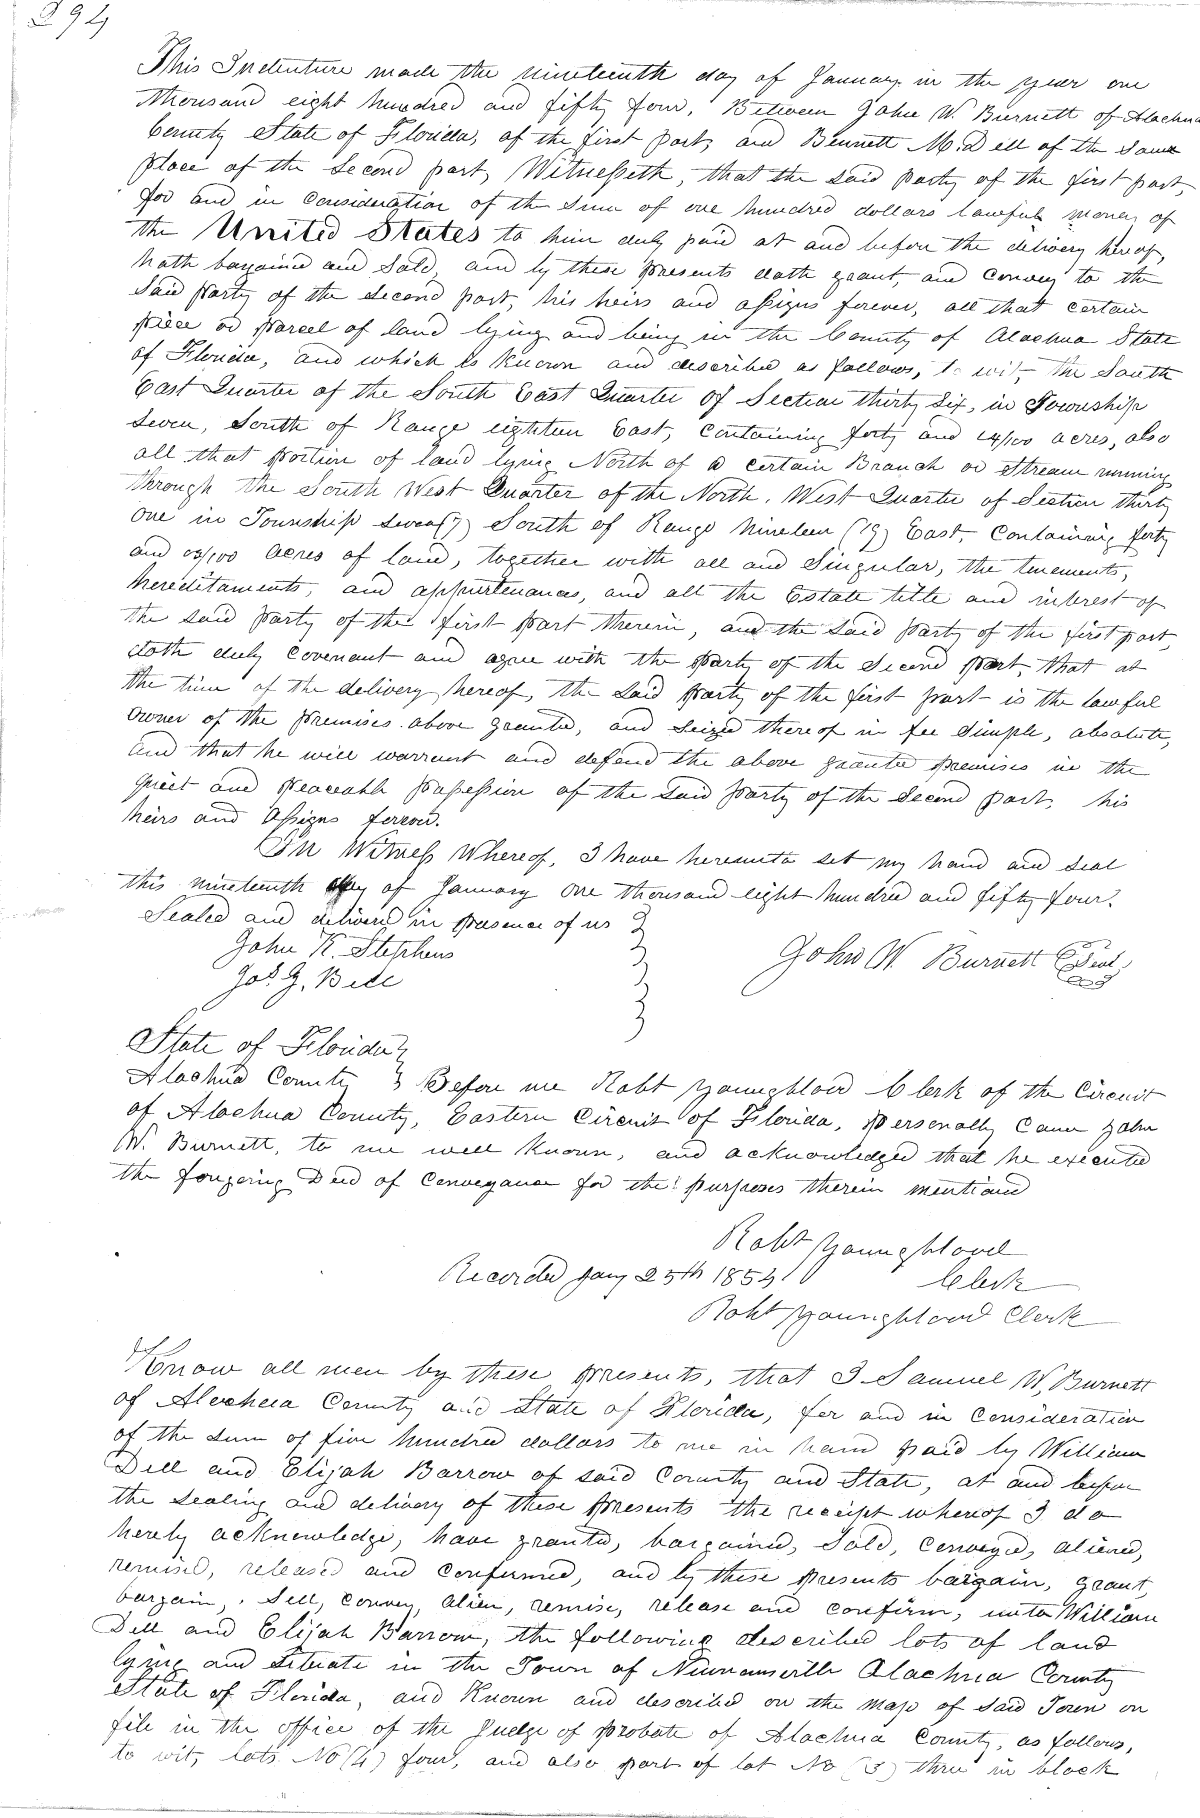 294
This Indenture made the nineteenth day of January in the year one
thousand eight hundred and fifty four, Between John W. Burnett of Alachua
County State of Florida, of the first part, and Bennett M. Dell of the same
place of the second part, Witnesseth, that the said party of the first part,
for and in consideration of the sum of one hundred dollars lawful money of
the United States to him duly paid at and before the delivery hereof,
hath bargained and sold, and by these presents doth grant, and convey to the
said party of the second part, his heirs and assigns forever, all that certain
piece or parcel of land lying and being in the County of Alachua State
of Florida, and which is known and described as follows, to wit, the South
East Quarter of the South East Quarter of Section thirty six, in Township
seven, South of Range eighteen East, containing forty and 14/100 acres, also
all that portion of land lying North of a certain Branch or Stream running
through the South West Quarter of the North West Quarter of Section thirty
one in Township seven (7) South of Range Nineteen (19) East, containing forty
and 03/100 acres of land, together with all and singular, the tenements,
hereditaments, and appurtenances, and all the Estate title and interest of
the said party of the first part therein, and the said party of the first part,
doth duly covenant and agree with the party of the second part, that at
the time of the delivery hereof, the said party of the first part is the lawful
owner of the premises above granted, and seized thereof in fee simple, absolute,
and that he will warrant and defend the above granted premises in the
quiet and peaceable possession of the said party of the second part, his
heirs and assigns forever.
In Witness Whereof, I have hereunto set my hand and seal
this nineteenth day of January one thousand eight hundred and fifty four.
Sealed and delivered in presence of us
John K. Stephens
John W. Burnett Seal
Jos. G. Bell
State of Florida
Alachua County Before me Robt Youngblood Clerk of the Circuit
of Alachua County, Eastern Circuit of Florida, personally came John
W. Burnett, to me well known, and acknowledged that he executed
the foregoing Deed of Conveyance for the purposes therein mentioned
Robt Youngblood
Recorded Jany 25th 1854
Clerk
Robt Youngblood Clerk
Know all men by these presents, that I Samuel W. Burnett
of Alachua County and State of Florida, for and in consideration
of the sum of five hundred dollars to me in hand paid by William
Dell and Elijah Barrow of said County and State, at and before
the sealing and delivery of these presents the receipt whereof I do
hereby acknowledge, have granted, bargained, sold, conveyed, aliened,
remised, released and confirmed, and by these presents bargain, grant,
bargain, sell, convey, alien, remise, release and confirm, unto William
Dell and Elijah Barrow, the following described lots of land
lying and situate in the Town of Newnansville Alachua County
State of Florida, and known and described on the map of said Town on
file in the office of the Judge of probate of Alachua County, as follows,
to wit, lots No (4) four, and also part of lot No (3) three in block